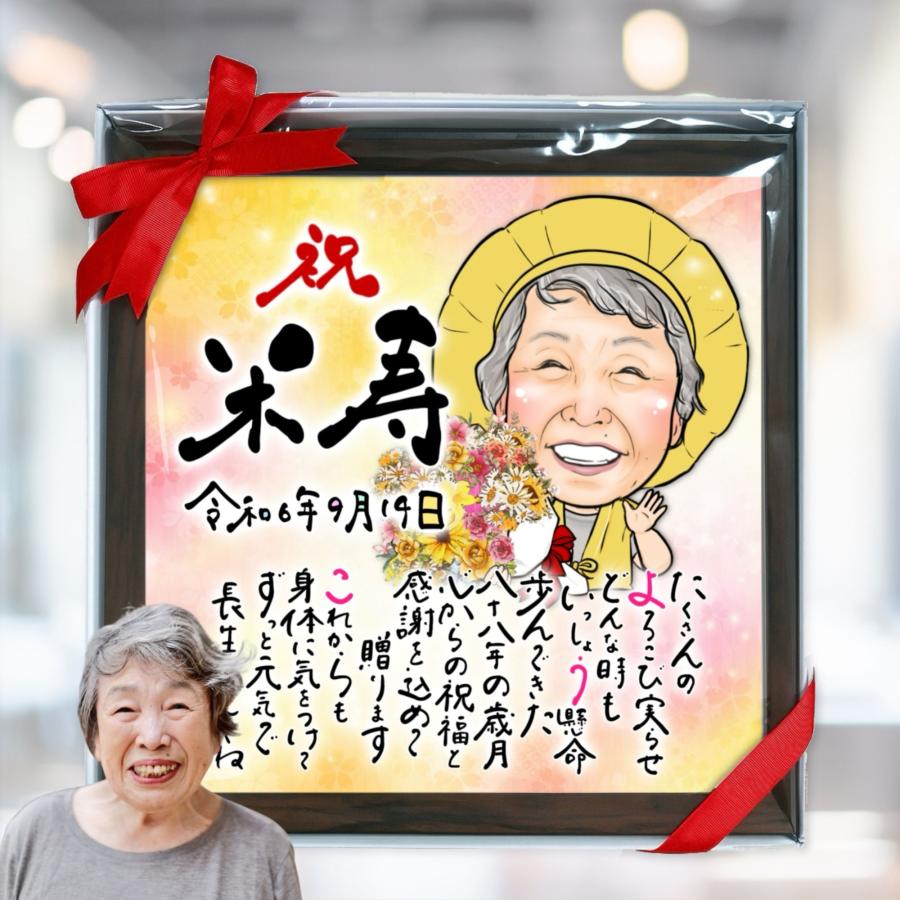 祝
米寿
令和6年9月19日
たくさんの
よろこび実らせ
どんな時も
いっしょう懸命
歩んできた
八十八年の歳月
心からの祝福と
感謝を込めて
贈ります
これからも
身体に気をつけて
ずっと元気で
長生
ね